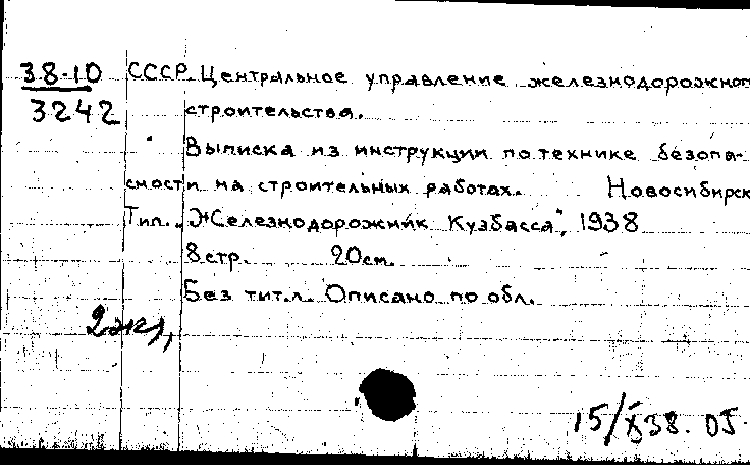 38-10 СССР. Центральное управление железнодорожного
3242 строительства.
Выписка из инструкции по технике безопа-
сности на строительных работах. Новосибирск
Тип. "Железнодорожник Кузбасса", 1938
8 стр. 20 см.
Без тит. л. Описано по обл.
2 экз,
15/X 38. ОТ.